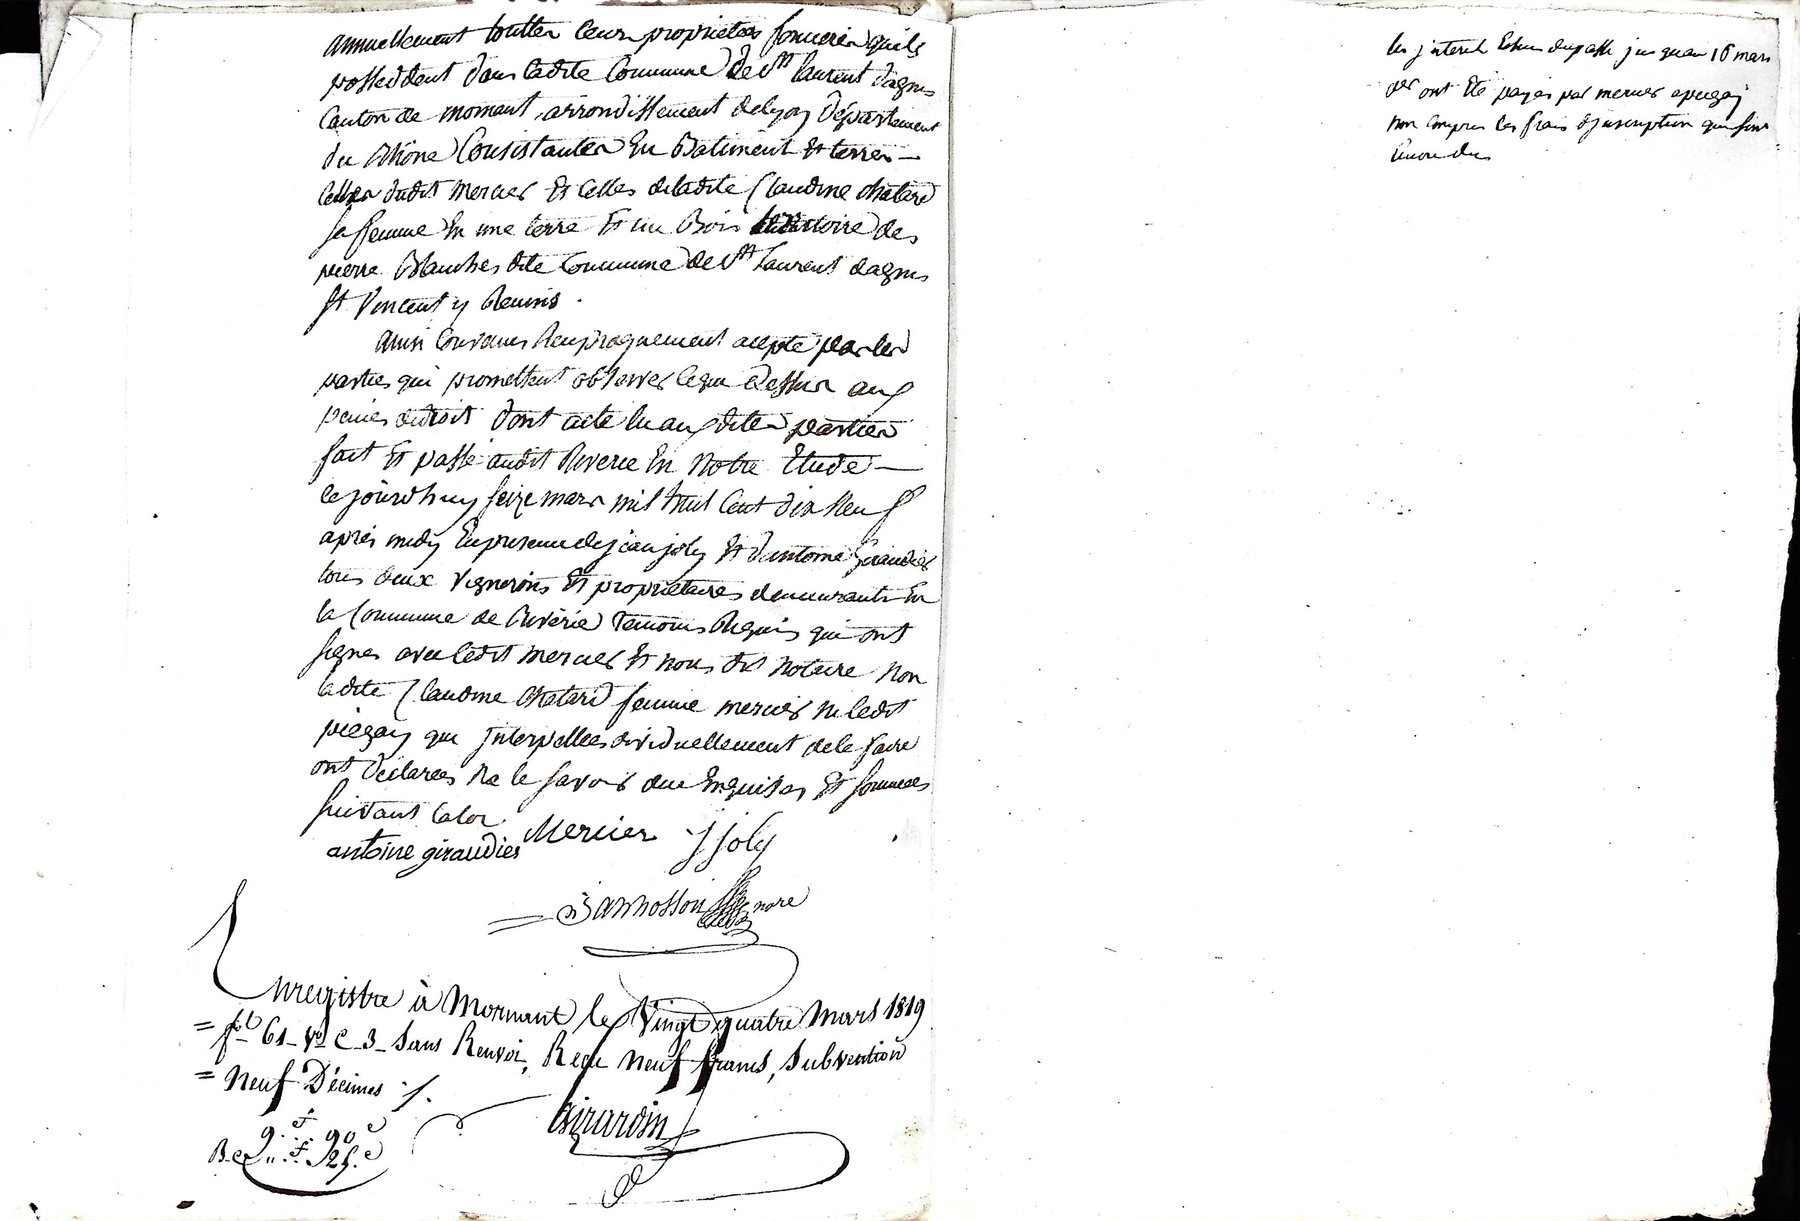 annuellement touttes leurs proprietées foncieres quils
possedent dans ladite Commune de St laurent dagny
Canton de mornant, arrondissement de lyon Département
du Rhône Consistantes En Batiment Et terres —
celles dudit mercier Et celles de ladite Claudine chatard
sa femme En une terre Et un Bois territoire des
pierre Blanches dite Commune de St laurent dagny
St Vincent y Reunis .
ainsi Convenus Reciproquement acepté par les
parties qui promettent observer ce que dessus aux
peines de droit dont acte lu aux dites parties
fait Et passé audit Riverie En Notre Etude —
cejourdhuy seize mars mil huit Cent dix Neuf
après midy En presence de jean joly Et d'antoine Giraudier
tous deux vignerons Et proprietaires demeurants En
la Commune de Riverie Temoins Requis qui ont
signes avec ledit mercier Et nous dit Notaire Non
ladite Claudine chatard femme mercier ni ledit
piegay qui interpellés dividuellement de le faire
ont déclarés Ne le savoir due Enquises Et sommes
suivant la loi
antoine giraudier Mercier J joly
Bannosson nore
Enregistré à Mornant le Vingt quatre Mars 1819
= fol 61 - Vo C - 3 - Sans Renvoi, Reçu neuf francs, Subvention
= Neuf Décimes ./.
9 f 90 c
B.C. 2 " f 25 c
Girardin
les jnterets Echus du passé jusquau 16 mars
ont Eté payés par mercier a piegay
non compris les frais d'jnscription qui sont
Encore dus